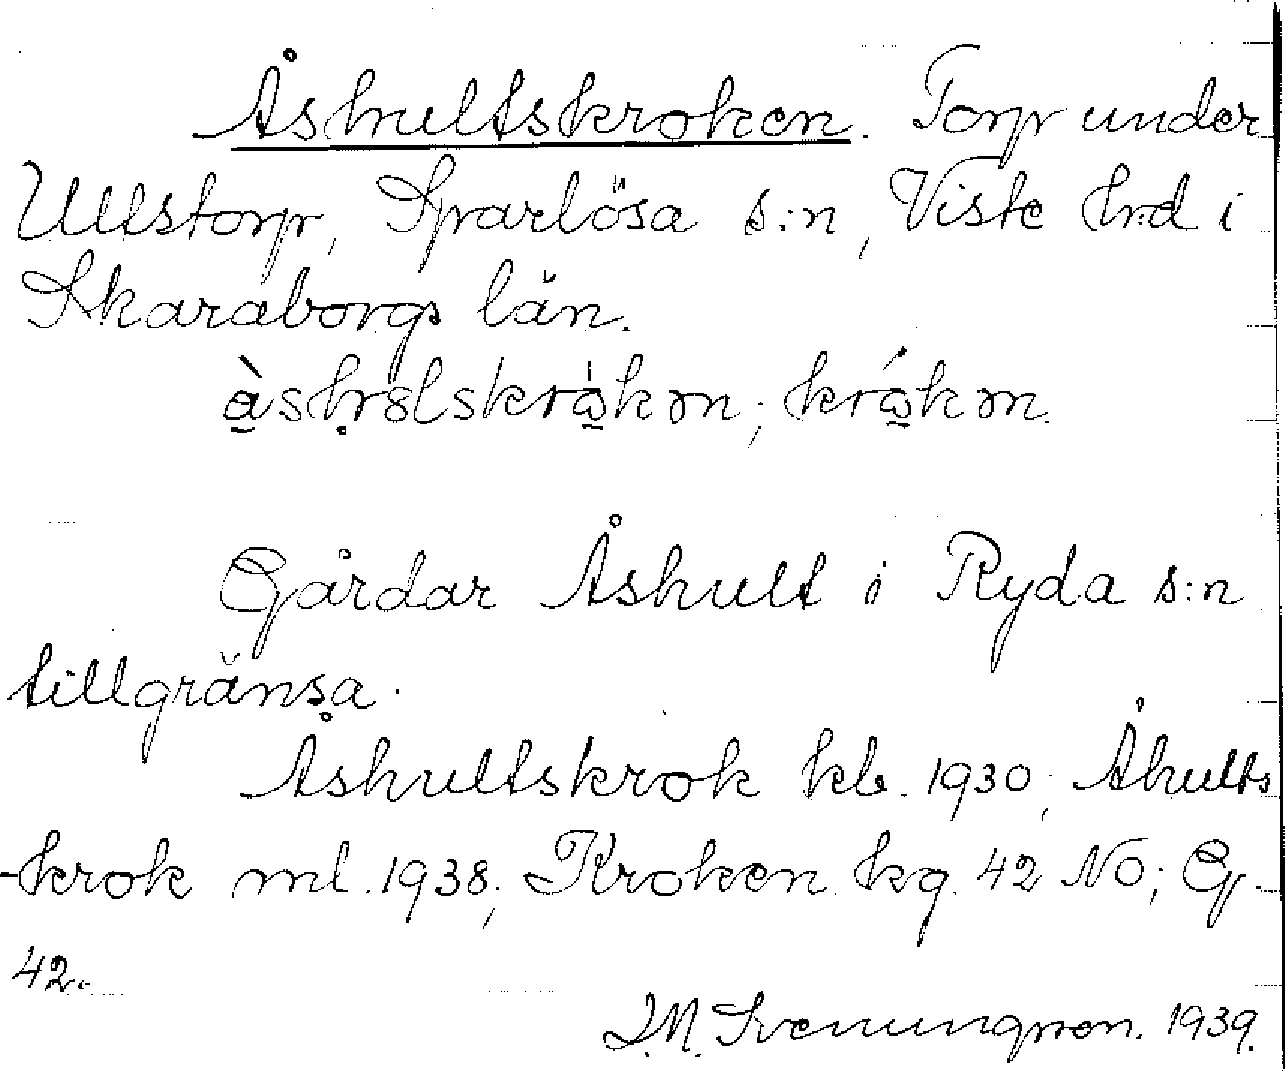 Åshultskroken. Torp under
Ullstorp, Sparlösa s:n, Viste hrd i
Skaraborgs län.
Gårdar Åshult i Ryda s:n
tillgränsa.
Åshultskrok kb. 1930; Åhults
-krok ml. 1938; Kroken kg. 42 NO; G.
42.
J.M. Svenungsson. 1939.